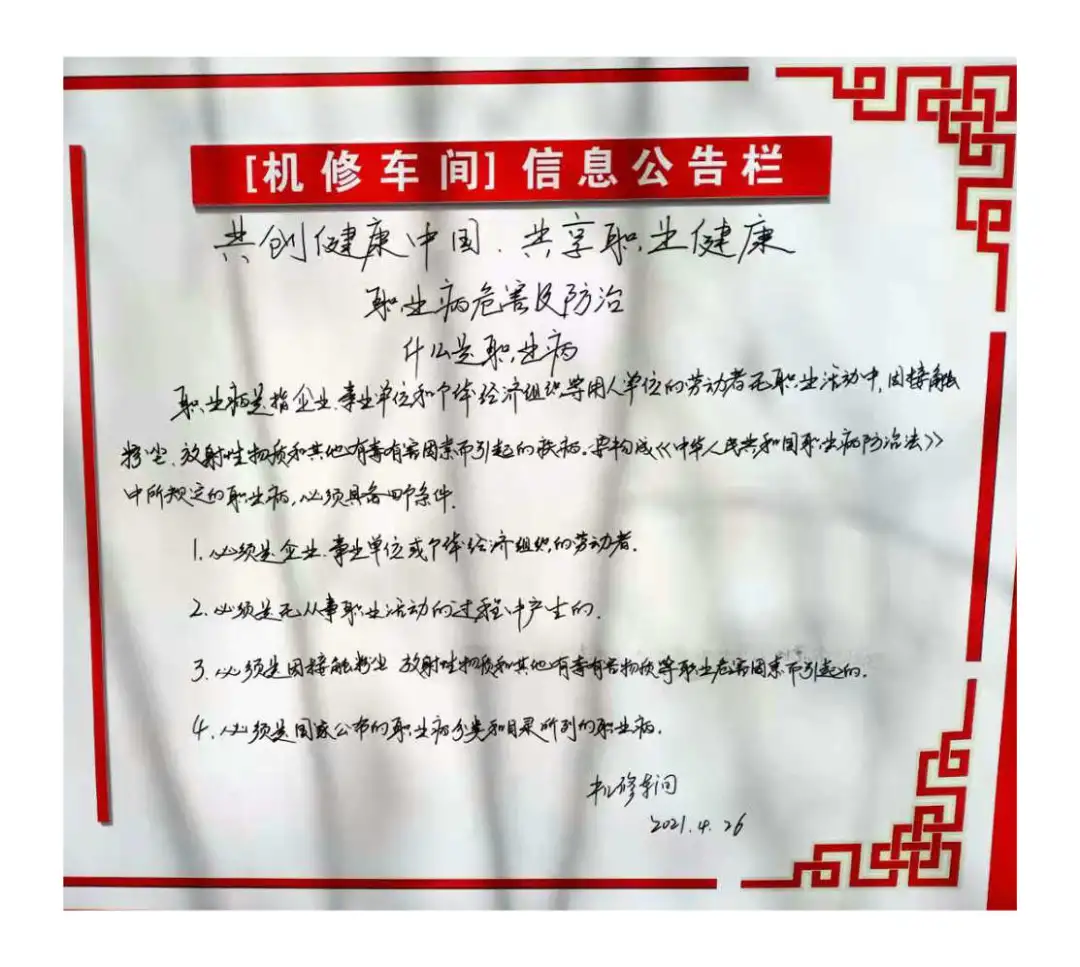 [机修车间]信息公告栏
共创健康中国、共享职业健康
职业病危害及防治
什么是职业病
职业病是指企业、事业单位和个体经济组织等用人单位的劳动者在职业活动中,因接触
粉尘、放射性物质和其他有毒有害因素而引起的疾病。要构成《中华人民共和国职业病防治法》
中所规定的职业病,必须具备四个条件.
1.必须是企业、事业单位或个体经济组织的劳动者.
2.必须是在从事职业活动的过程中产生的.
3.必须是因接触粉尘 放射性物质和其他有毒有害物质等职业危害因素而引起的.
4.必须是国家公布的职业病分类和目录所列的职业病.
机修车间
2021.4.26